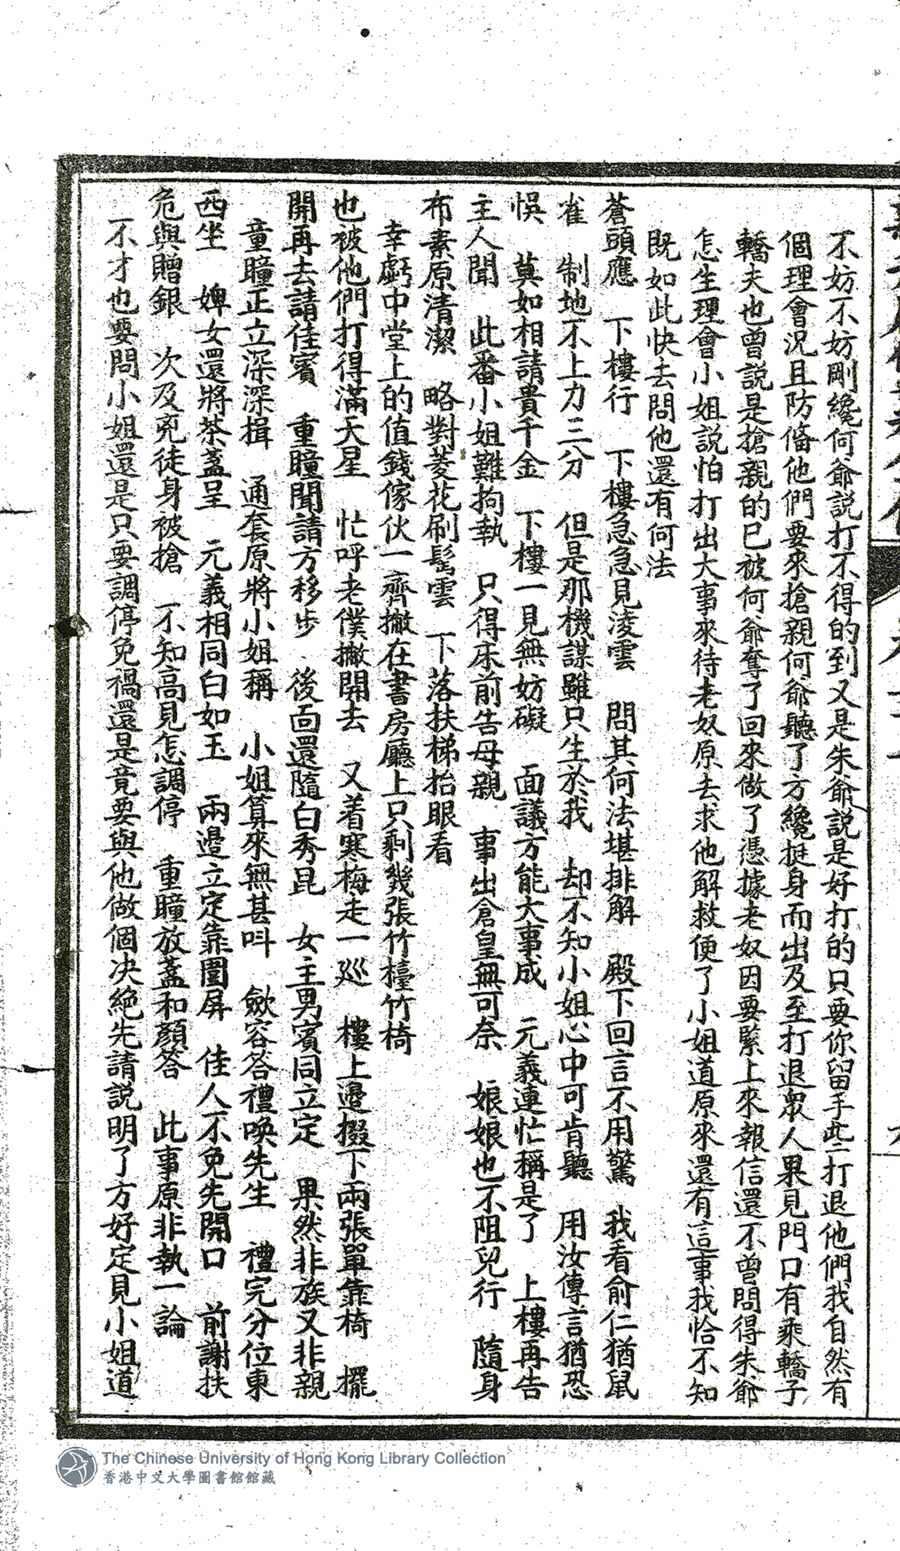 不妨不妨剛纔何爺説打不得的到又是朱爺説是好打的只要你留手些打退他們我自然有
個理會況且防俻他們要來搶親何爺聽了方纔挺身而出及至打退眾人果見門口有乘轎子
轎夫也曾説是搶親的已被何爺奪了回來做了憑據老奴因要緊上來報信還不曾問得朱爺
怎生理會小姐説怕打出大事來待老奴原去求他解救便了小姐道原來還有這事我恰不知
既如此快去問他還有何法
蒼頭應 下樓行 下樓急急見淩雲 問其何法堪排解 殿下回言不用驚 我看俞仁猶鼠
雀 制地不上力三分 但是那機謀雖只生於我 却不知小姐心中可肯聽 用汝傳言猶恐
悞 莫如相請貴千金 下樓一見無妨礙 面議方能大事成 元義連忙稱是了 上樓再告
主人聞 此番小姐難拘執 只得床前告母親 事出倉皇無可奈 娘娘也不阻兒行 隨身
布素原清潔 略對菱花刷髩雲 下落扶梯抬眼看
幸虧中堂上的值錢傢伙一齊撇在書房廳上只剩幾張竹檯竹椅
也被他們打得滿天星 忙呼老僕撇開去 又着寒梅走一巡 樓上邊掇下兩張單靠椅 擺
開再去請佳賓 重瞳聞請方移步 後面還隨白秀昆 女主男賓同立定 果然非族又非親
童瞳正立深深揖 通套原將小姐稱 小姐算來無甚呌 歛容答禮喚先生 禮完分位東
西坐 婢女還將茶盞呈 元義相同白如玉 兩邊立定靠圍屏 佳人不免先開口 前謝扶
危與贈銀 次及兇徒身被搶 不知高見怎調停 重瞳放盞和顏答 此事原非執一論
不才也要問小姐還是只要調停免禍還是竟要與他做個决絕先請説明了方好定見小姐道
The Chinese University of Hong Kong Library Collection
香港中文大學圖書館館藏